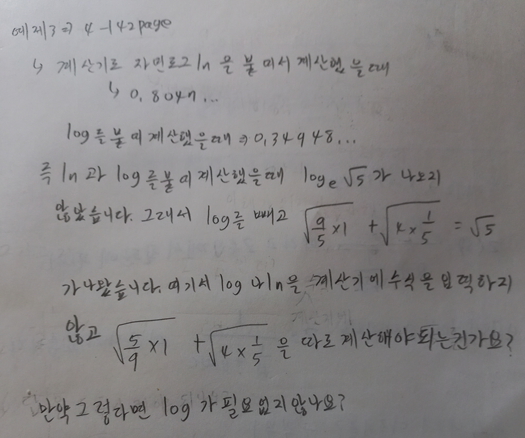 예제3 ⇒ 4-142page
↳ 계산기로 자연로그 ln 을 붙여서 계산했을때
↳ 0.804n...
log를 붙여 계산했을때 ⇒ 0.34948...
즉 ln 과 log를 붙여 계산했을때 logₑ√5 가 나오지
않았습니다. 그래서 log를 빼고 √(9/5 ×1) + √(4×1/5) = √5
가 나왔습니다. 여기서 log 나 ln을 계산기에 수식을 입력하지
않고 √(5/9 ×1) + √(4×1/5) 을 따로 계산해야 되는건가요?
만약 그렇다면 log 가 필요 없지 않나요?